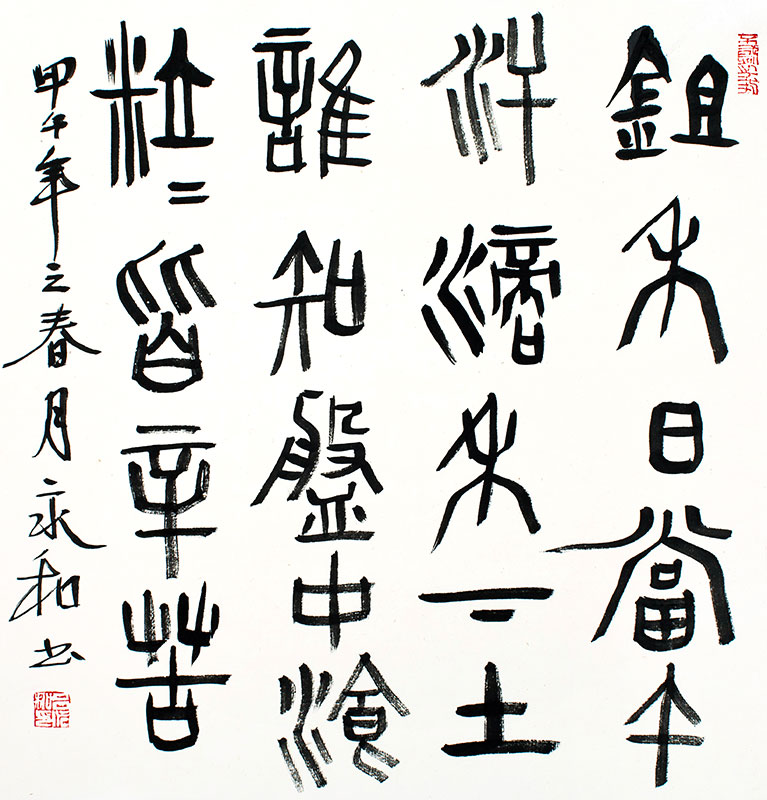 鉏禾日當午
汗滴禾下土
誰知盤中湌
粒〻皆辛苦
甲午年之春月永和书